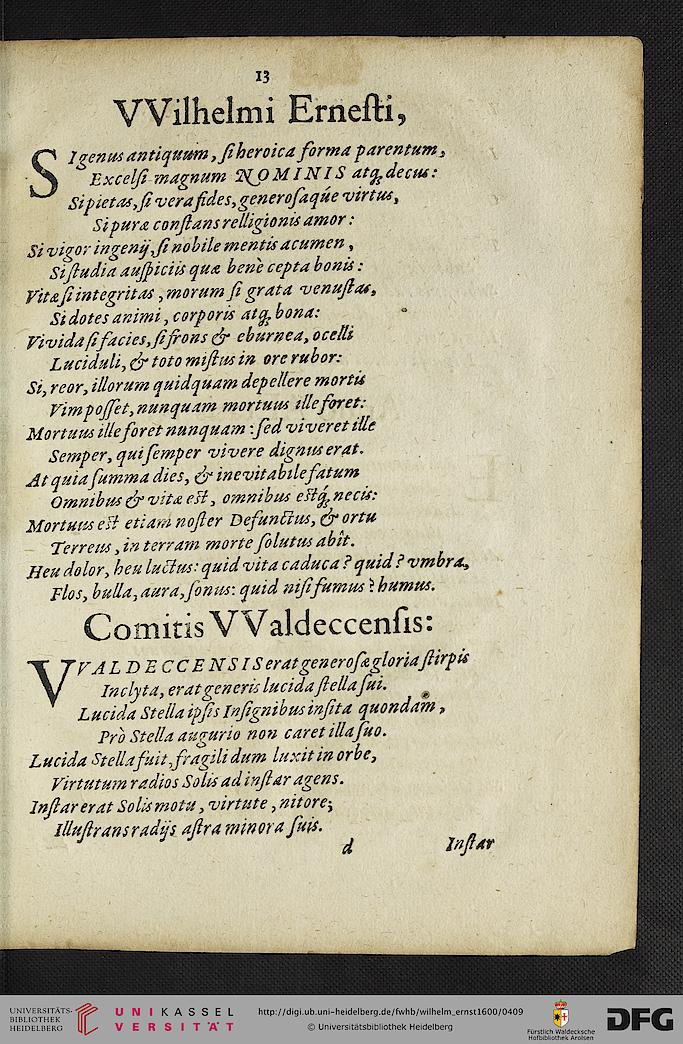 13
VVilhelmi Erneſti,
SI genus antiquum, ſi heroica forma parentum,
Excelſi magnum NOMINIS atq́; decus:
Si pietas, ſi vera fides, generoſaq́ue virtus,
Si puræ conſtans relligionis amor:
Si vigor ingenij, ſi nobile mentis acumen,
Si ſtudia auſpiciis quæ benè cepta bonis:
Vitæ ſi integritas, morum ſi grata venuſtas,
Si dotes animi, corporis atq́; bona:
Vivida ſi facies, ſi frons & eburnea, ocelli
Luciduli, & toto miſtus in ore rubor:
Si, reor, illorum quidquam depellere mortis
Vim poſſet, nunquam mortuus ille foret:
Mortuus ille foret nunquam: ſed viveret ille
Semper, qui ſemper vivere dignus erat.
At quia ſumma dies, & inevitabile fatum
Omnibus & vitæ eſt, omnibus eſtq́; necis:
Mortuus eſt etiam noſter Defunctus, & ortu
Terreus, in terram morte ſolutus abit.
Heu dolor, heu luctus: quid vita caduca? quid? vmbra,
Flos, bulla, aura, ſonus: quid niſi fumus? humus.
Comitis VValdeccenſis:
VVALDECCENSIS erat generoſæ gloria ſtirpis
Inclyta, erat generis lucida ſtella ſui.
Lucida Stella ipſis Inſignibus inſita quondam,
Prò Stella augurio non caret illa ſuo.
Lucida Stella fuit, fragili dum luxit in orbe,
Virtutum radios Solis ad inſtar agens.
Inſtar erat Solis motu, virtute, nitore;
Illuſtrans radijs aſtra minora ſuis.
d Inſtar
UNIVERSITÄTS-
BIBLIOTHEK
HEIDELBERG
UNIKASSEL
VERSITÄT
http://digi.ub.uni-heidelberg.de/fwhb/wilhelm_ernst1600/0409
© Universitätsbibliothek Heidelberg
Fürstlich Waldecksche
Hofbibliothek Arolsen
DFG